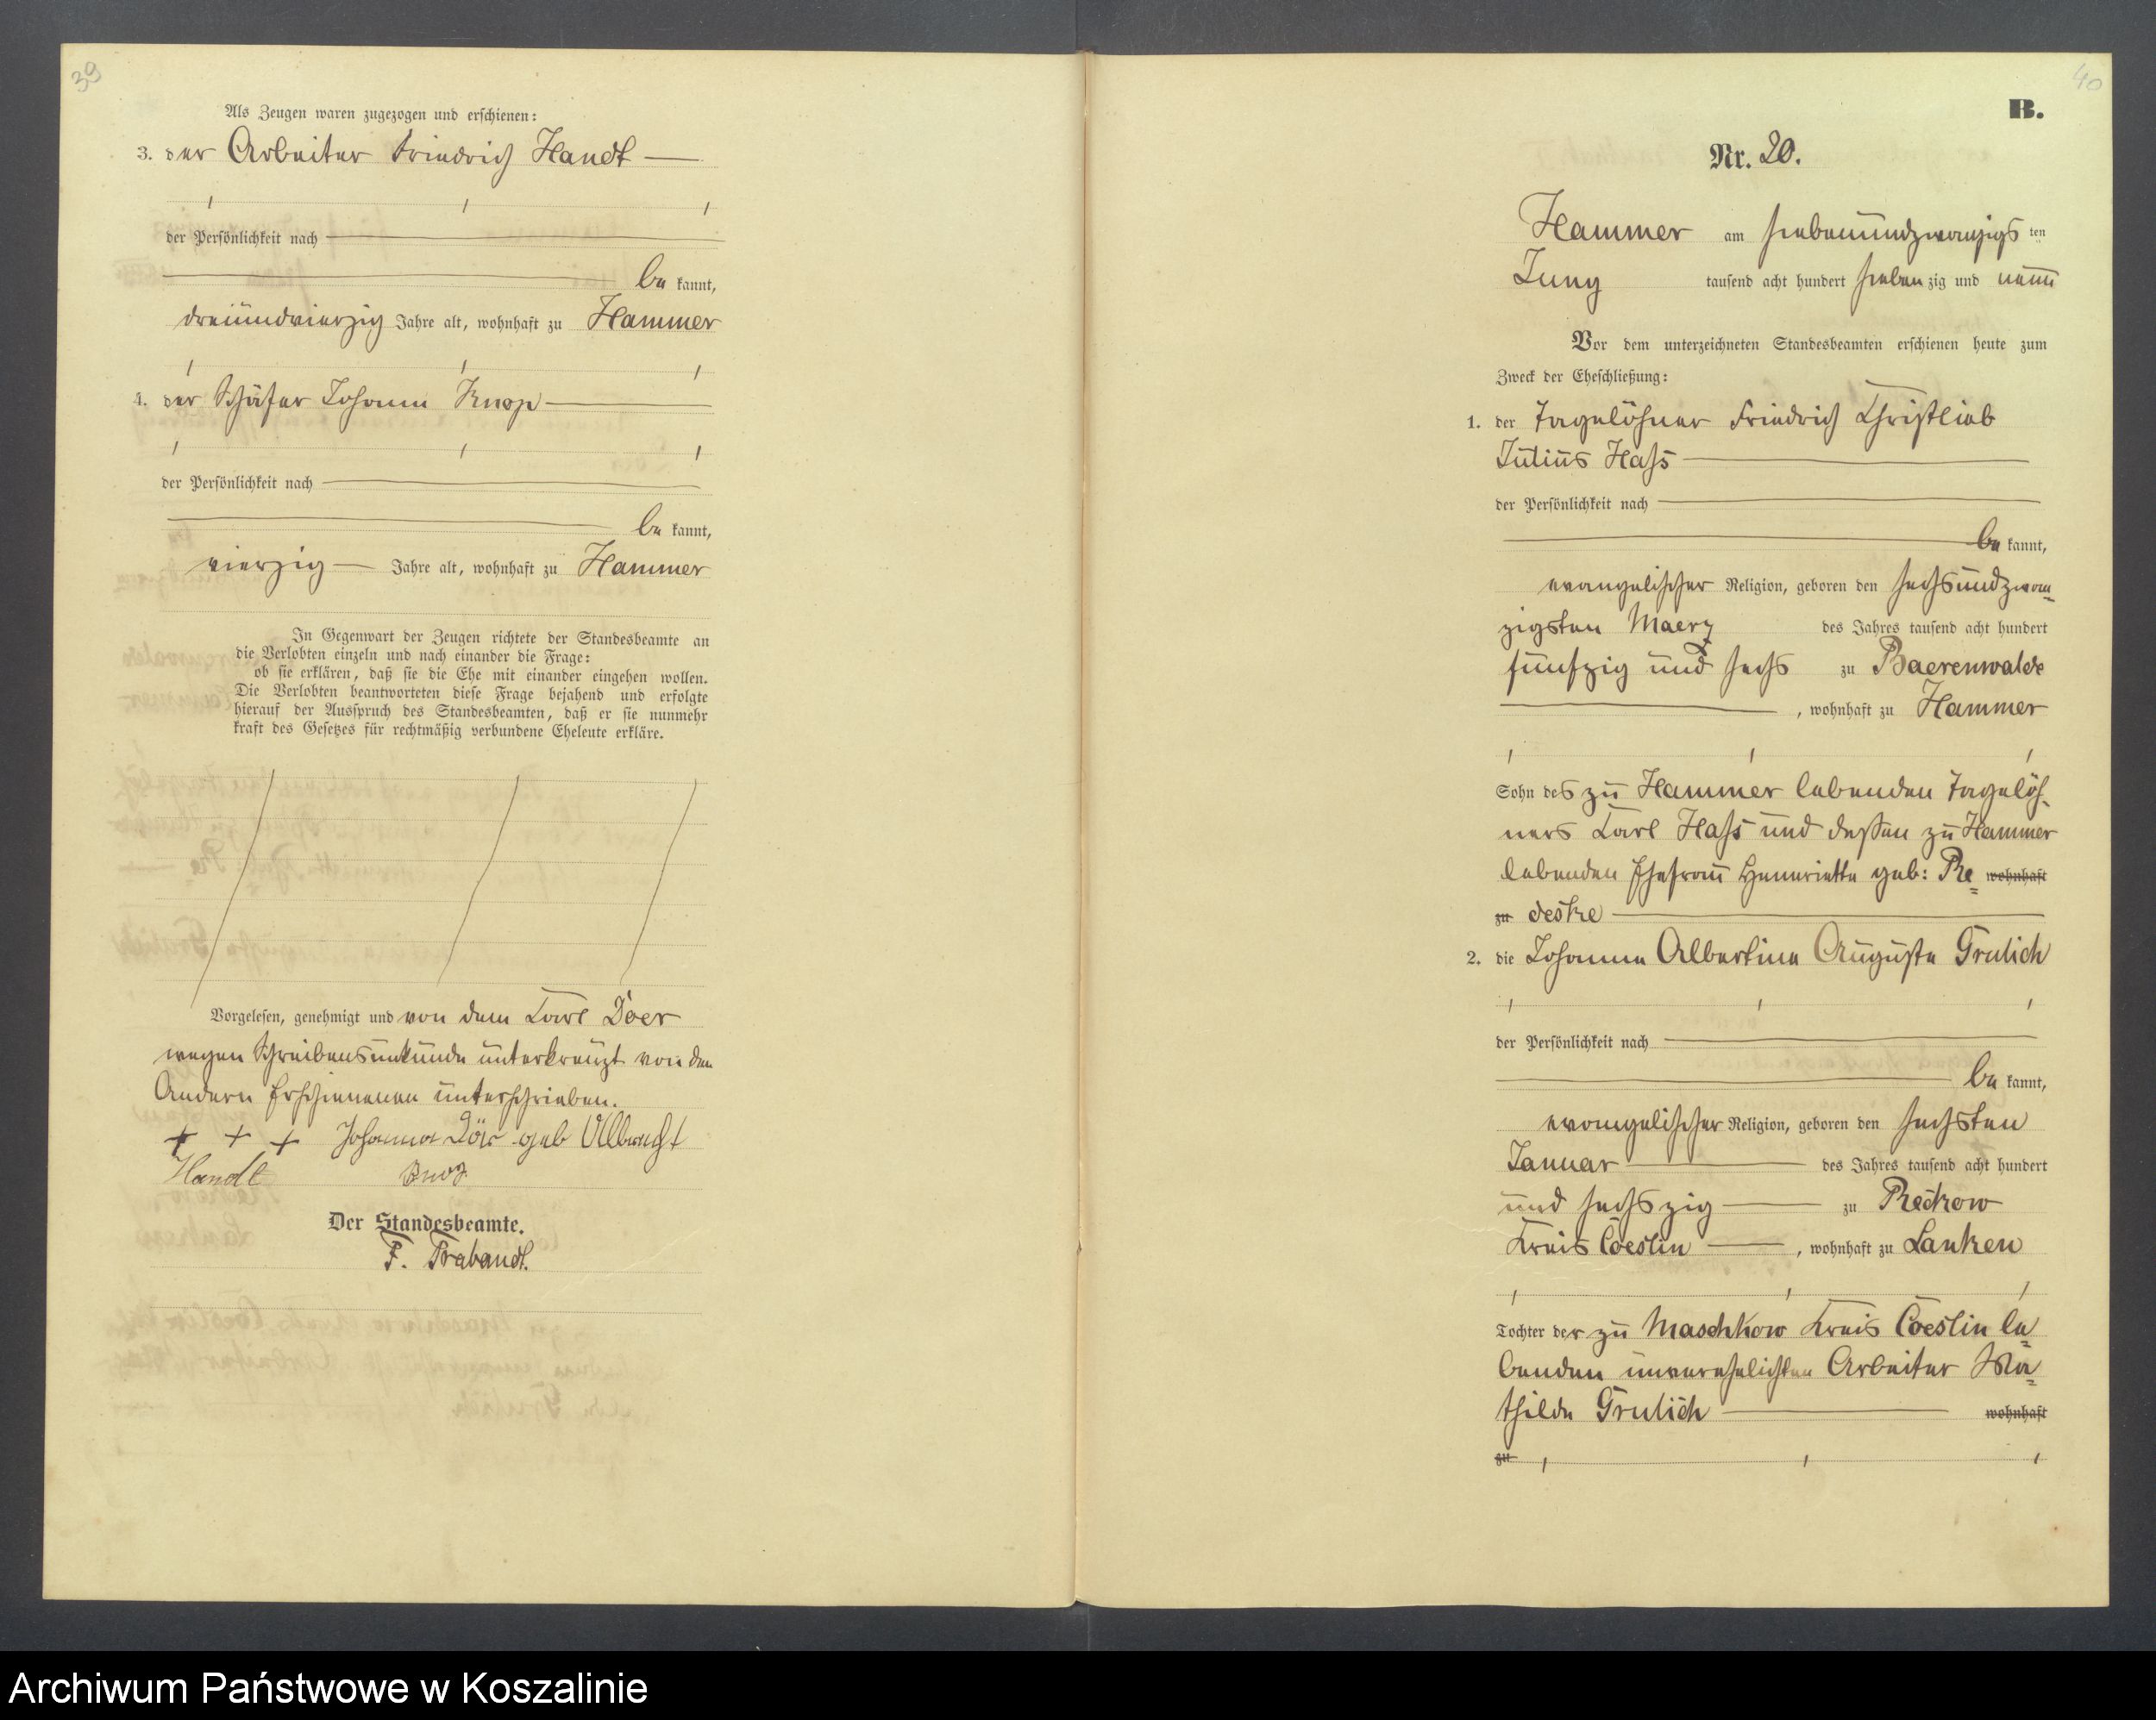 39
Als Zeugen waren zugezogen und erschienen:
3. der Arbeiter Friedrich Handt
der Persönlichkeit nach
be kannt,
dreiundvierzig Jahre alt, wohnhaft zu Hammer
4. der Schäfer Johann Knop
der Persönlichkeit nach
be kannt,
vierzig Jahre alt, wohnhaft zu Hammer
In Gegenwart der Zeugen richtete der Standesbeamte an
die Verlobten einzeln und nach einander die Frage:
ob sie erklären, daß sie die Ehe mit einander eingehen wollen.
Die Verlobten beantworteten diese Frage bejahend und erfolgte
hierauf der Ausspruch des Standesbeamten, daß er sie nunmehr
kraft des Gesetzes für rechtmäßig verbundene Eheleute erkläre.
Vorgelesen, genehmigt und von dem Carl Doer
wegen Schreibensunkunde unterkreuzt von den
Andern Erschienenen unterschrieben.
+ + + Johanna Dör geb Ullbrecht
Handt Knop
Der Standesbeamte.
F. Trabandt.
40
B.
Nr. 20.
Hammer am siebenundzwanzigs ten
Juny tausend acht hundert sieben zig und neun
Vor dem unterzeichneten Standesbeamten erschienen heute zum
Zweck der Eheschließung:
1. der Tagelöhner Friedrich Christlieb
Julius Hass
der Persönlichkeit nach
be kannt,
evangelischer Religion, geboren den sechsundzwan-
zigsten Maerz des Jahres tausend acht hundert
fünfzig und sechs zu Baerenwalde
, wohnhaft zu Hammer
Sohn des zu Hammer lebenden Tagelöh-
ners Carl Hass und dessen zu Hammer
lebenden Ehefrau Henriette geb: Re= wohnhaft
zu deske
2. die Johanne Albertine Auguste Grulich
der Persönlichkeit nach
be kannt,
evangelischer Religion, geboren den sechsten
Januar des Jahres tausend acht hundert
und sechszig zu Reckow
Kreis Coeslin , wohnhaft zu Lanken
Tochter der zu Maschkow Kreis Coeslin le=
benden unverehelichten Arbeiter Ma=
thilde Grulich wohnhaft
zu
Archiwum Państwowe w Koszalinie